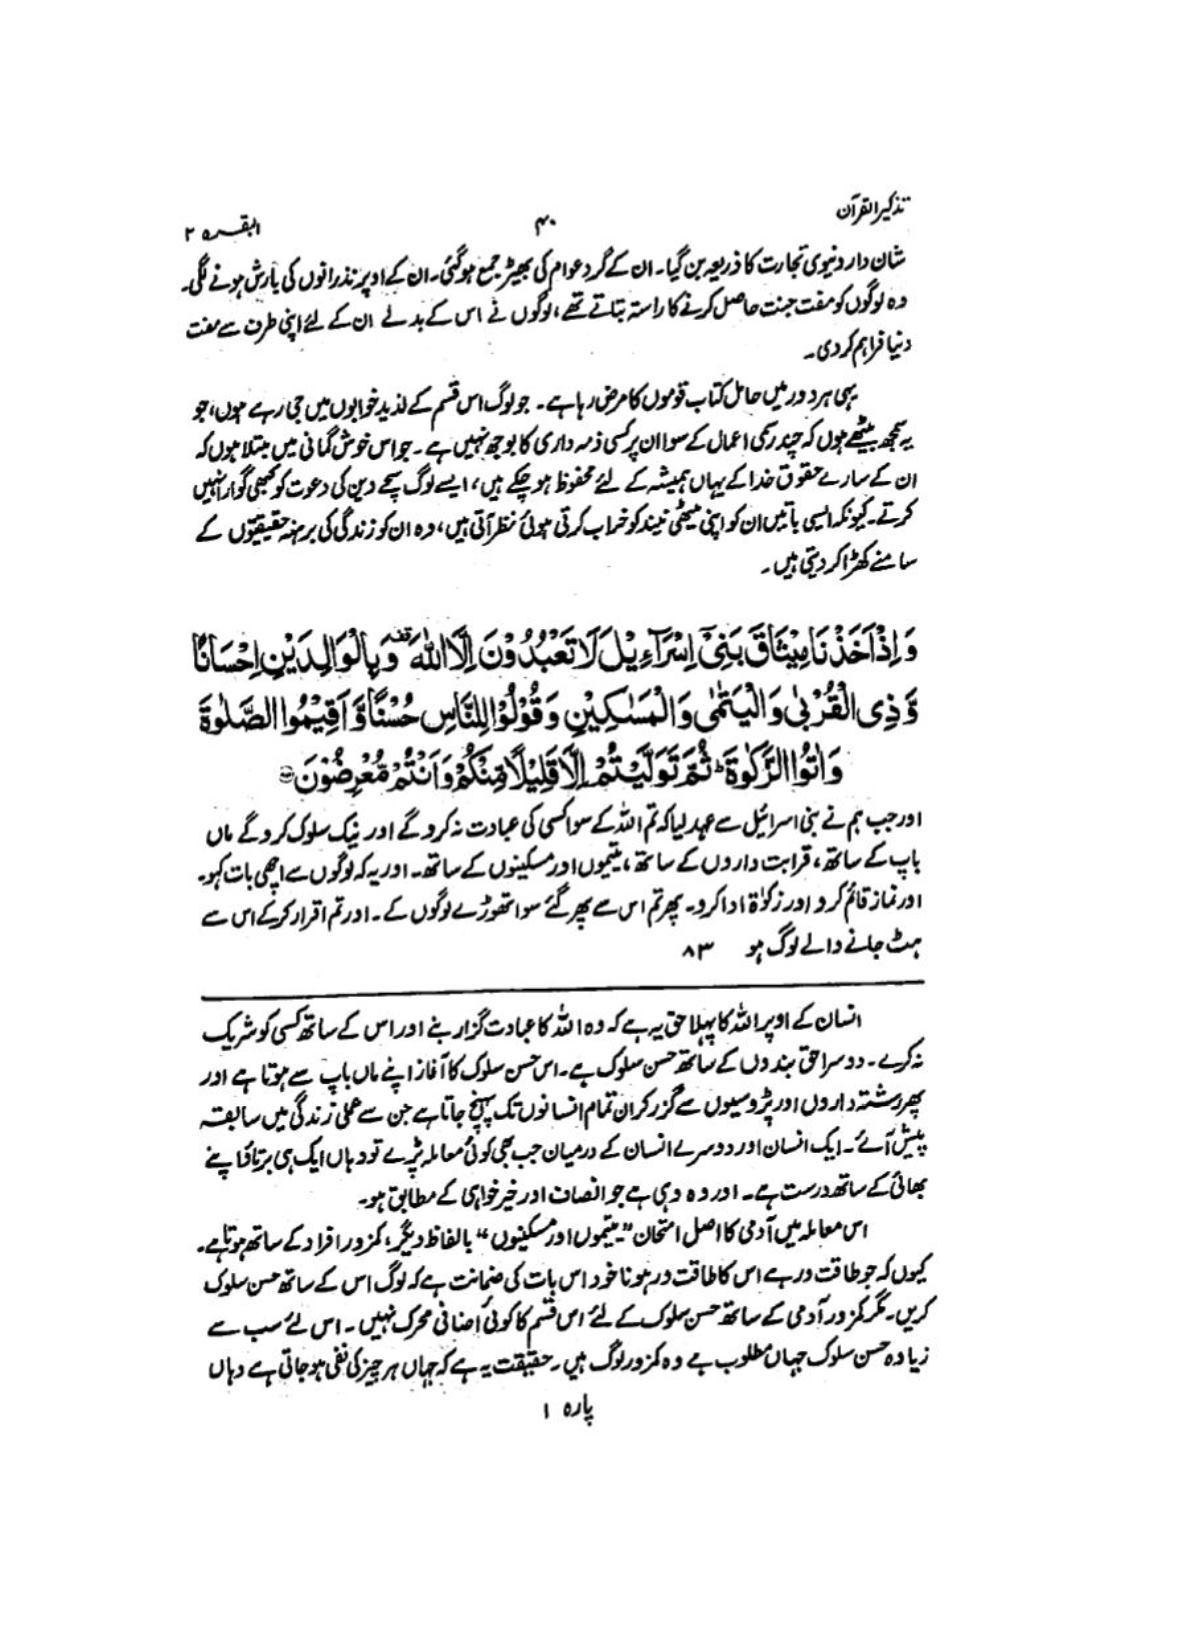 تذکیر القرآن
۴۰
البقرہ ۲
شان دار دنیوی تجارت کا ذریعہ بن گیا۔ ان کے گرد عوام کی بھیڑ جمع ہوگئی۔ ان کے اوپر نذرانوں کی بارش ہونے لگی۔
وہ لوگوں کو مفت جنت حاصل کرنے کا راستہ بتاتے تھے، لوگوں نے اس کے بدلے ان کے لئے اپنی طرف سے مفت
دنیا فراہم کر دی۔
یہی ہر دور میں حامل کتاب قوموں کا مرض رہا ہے۔ جو لوگ اس قسم کے لذیذ خوابوں میں جی رہے ہوں، جو
یہ سمجھ بیٹھے ہوں کہ چند رسمی اعمال کے سوا ان پر کسی ذمہ داری کا بوجھ نہیں ہے۔ جو اس خوش گمانی میں مبتلا ہوں کہ
ان کے سارے حقوق خدا کے یہاں ہمیشہ کے لئے محفوظ ہو چکے ہیں، ایسے لوگ سچے دین کی دعوت کو کبھی گوارا نہیں
کرتے۔ کیونکہ ایسی باتیں ان کو اپنی میٹھی نیند کو خراب کرتی ہوئی نظر آتی ہیں، وہ ان کو زندگی کی برہنہ حقیقتوں کے
سامنے کھڑا کر دیتی ہیں۔
وَاِذْ اَخَذْنَا مِيْثَاقَ بَنِيْٓ اِسْرَآءِيْلَ لَا تَعْبُدُوْنَ اِلَّا اللّٰهَ ۫ وَبِالْوَالِدَيْنِ اِحْسَانًا
وَّذِي الْقُرْبٰى وَالْيَتٰمٰى وَالْمَسٰكِيْنِ وَقُوْلُوْا لِلنَّاسِ حُسْنًا وَّاَقِيْمُوا الصَّلٰوةَ
وَاٰتُوا الزَّكٰوةَ ؕ ثُمَّ تَوَلَّيْتُمْ اِلَّا قَلِيْلًا مِّنْكُمْ وَاَنْتُمْ مُّعْرِضُوْنَ ۸۳
اور جب ہم نے بنی اسرائیل سے عہد لیا کہ تم اللہ کے سوا کسی کی عبادت نہ کرو گے اور نیک سلوک کرو گے ماں
باپ کے ساتھ، قرابت داروں کے ساتھ، یتیموں اور مسکینوں کے ساتھ۔ اور یہ کہ لوگوں سے اچھی بات کہو۔
اور نماز قائم کرو اور زکوٰۃ ادا کرو۔ پھر تم اس سے پھر گئے سوا تھوڑے لوگوں کے۔ اور تم اقرار کرکے اس سے
ہٹ جانے والے لوگ ہو ۸۳
انسان کے اوپر اللہ کا پہلا حق یہ ہے کہ وہ اللہ کا عبادت گزار بنے اور اس کے ساتھ کسی کو شریک
نہ کرے۔ دوسرا حق بندوں کے ساتھ حسن سلوک ہے۔ اس حسن سلوک کا آغاز اپنے ماں باپ سے ہوتا ہے اور
پھر رشتہ داروں اور پڑوسیوں سے گزر کر ان تمام انسانوں تک پہنچ جاتا ہے جن سے عملی زندگی میں سابقہ
پیش آئے۔ ایک انسان اور دوسرے انسان کے درمیان جب بھی کوئی معاملہ پڑے تو وہاں ایک ہی برتاؤ اپنے
بھائی کے ساتھ درست ہے۔ اور وہ وہی ہے جو انصاف اور خیر خواہی کے مطابق ہو۔
اس معاملہ میں آدمی کا اصل امتحان "یتیموں اور مسکینوں" بالفاظ دیگر، کمزور افراد کے ساتھ ہوتا ہے۔
کیوں کہ جو طاقت ور ہے اس کا طاقت ور ہونا خود اس بات کی ضمانت ہے کہ لوگ اس کے ساتھ حسن سلوک
کریں۔ مگر کمزور آدمی کے ساتھ حسن سلوک کے لئے اس قسم کا کوئی اضافی محرک نہیں۔ اس لئے سب سے
زیادہ حسن سلوک جہاں مطلوب ہے وہ کمزور لوگ ہیں۔ حقیقت یہ ہے کہ جہاں ہر چیز کی نفی ہو جاتی ہے وہاں
پارہ ۱